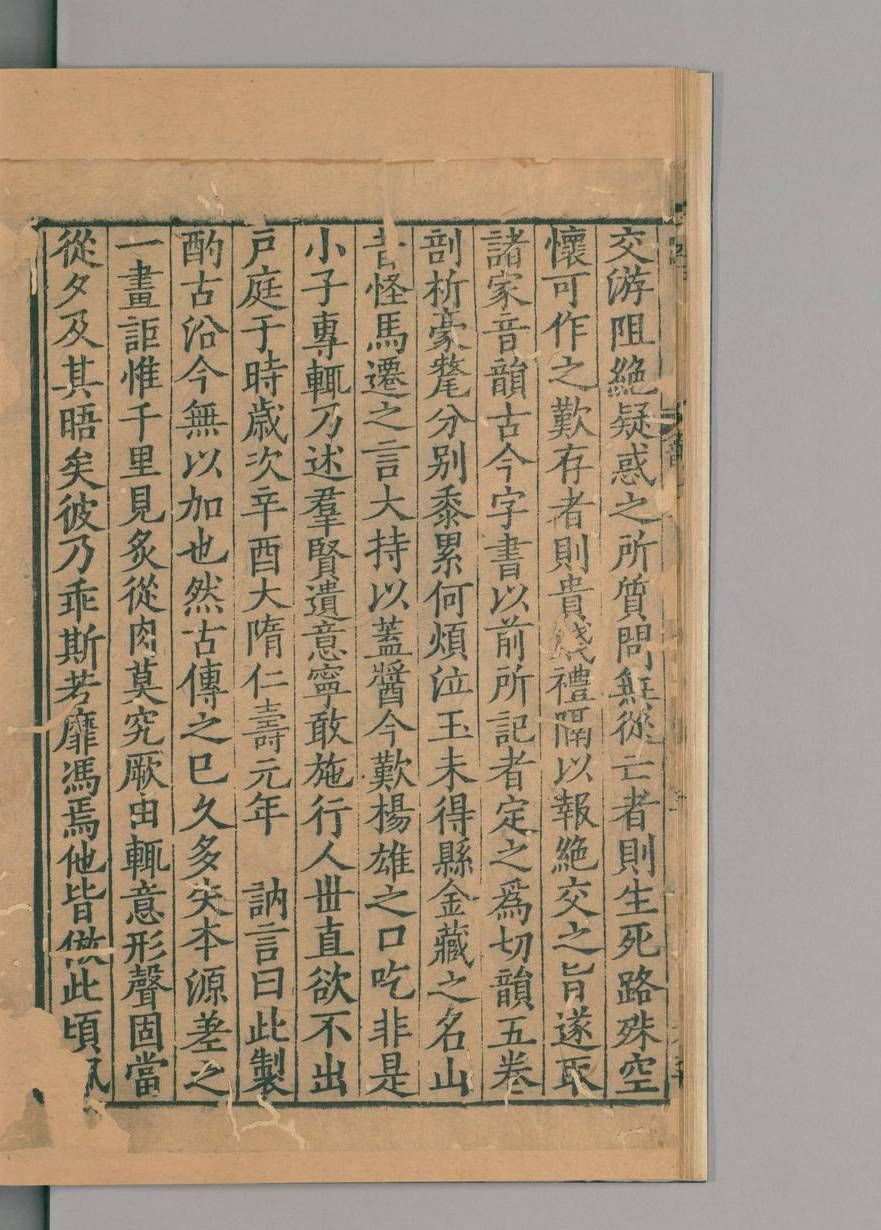 交游阻絶疑惑之所質問無從亡者則生死路殊空
懷可作之歎存者則貴賤禮隔以報絶交之旨遂取
諸家音韻古今字書以前所記者定之爲切韻五卷
剖析豪氂分别黍累何煩泣玉未得縣金藏之名山
昔怪馬遷之言大持以蓋醬今歎楊雄之口吃非是
小子專輒乃述羣賢遺意寧敢施行人丗直欲不出
戸庭于時歳次辛酉大隋仁壽元年　訥言曰此製
酌古沿今無以加也然古傳之已久多失本源差之
一畫詎惟千里見炙從肉莫究厥由輒意形聲固當
從夕及其晤矣彼乃乖斯若靡馮焉他皆倣此頃